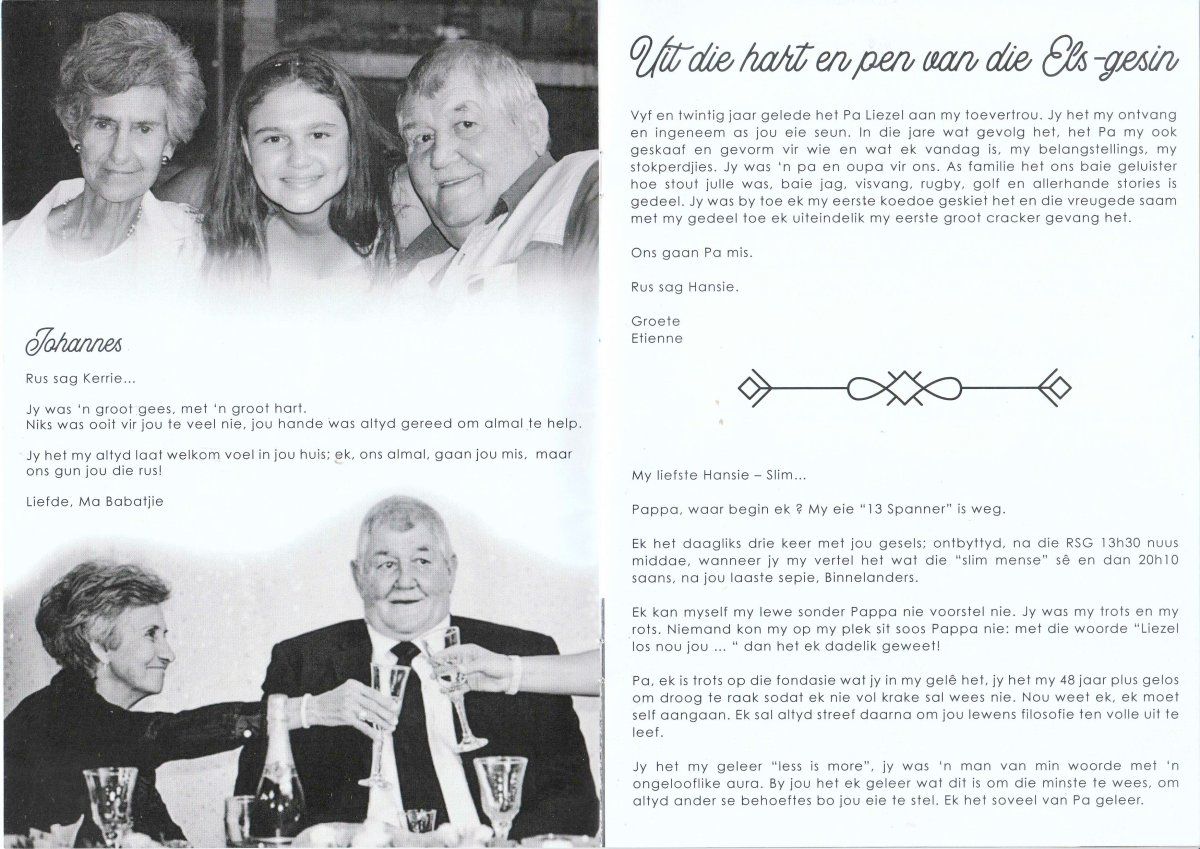 Johannes
Rus sag Kerrie...
Jy was ‘n groot gees, met ‘n groot hart.
Niks was ooit vir jou te veel nie, jou hande was altyd gereed om almal te help.
Jy het my altyd laat welkom voel in jou huis; ek, ons almal, gaan jou mis, maar
ons gun jou die rus!
Liefde, Ma Babatjie
Uit die hart en pen van die Els-gesin
Vyf en twintig jaar gelede het Pa Liezel aan my toevertrou. Jy het my ontvang
en ingeneem as jou eie seun. In die jare wat gevolg het, het Pa my ook
geskaaf en gevorm vir wie en wat ek vandag is, my belangstellings, my
stokperdjies. Jy was ‘n pa en oupa vir ons. As familie het ons baie geluister
hoe stout julle was, baie jag, visvang, rugby, golf en allerhande stories is
gedeel. Jy was by toe ek my eerste koedoe geskiet het en die vreugde saam
met my gedeel toe ek uiteindelik my eerste groot cracker gevang het.
Ons gaan Pa mis.
Rus sag Hansie.
Groete
Etienne
My liefste Hansie – Slim...
Pappa, waar begin ek ? My eie “13 Spanner” is weg.
Ek het daagliks drie keer met jou gesels; ontbyttyd, na die RSG 13h30 nuus
middae, wanneer jy my vertel het wat die “slim mense” sê en dan 20h10
saans, na jou laaste sepie, Binnelanders.
Ek kan myself my lewe sonder Pappa nie voorstel nie. Jy was my trots en my
rots. Niemand kon my op my plek sit soos Pappa nie: met die woorde “Liezel
los nou jou ... “ dan het ek dadelik geweet!
Pa, ek is trots op die fondasie wat jy in my gelê het, jy het my 48 jaar plus gelos
om droog te raak sodat ek nie vol krake sal wees nie. Nou weet ek, ek moet
self aangaan. Ek sal altyd streef daarna om jou lewens filosofie ten volle uit te
leef.
Jy het my geleer “less is more”, jy was ‘n man van min woorde met ‘n
ongelooflike aura. By jou het ek geleer wat dit is om die minste te wees, om
altyd ander se behoeftes bo jou eie te stel. Ek het soveel van Pa geleer.